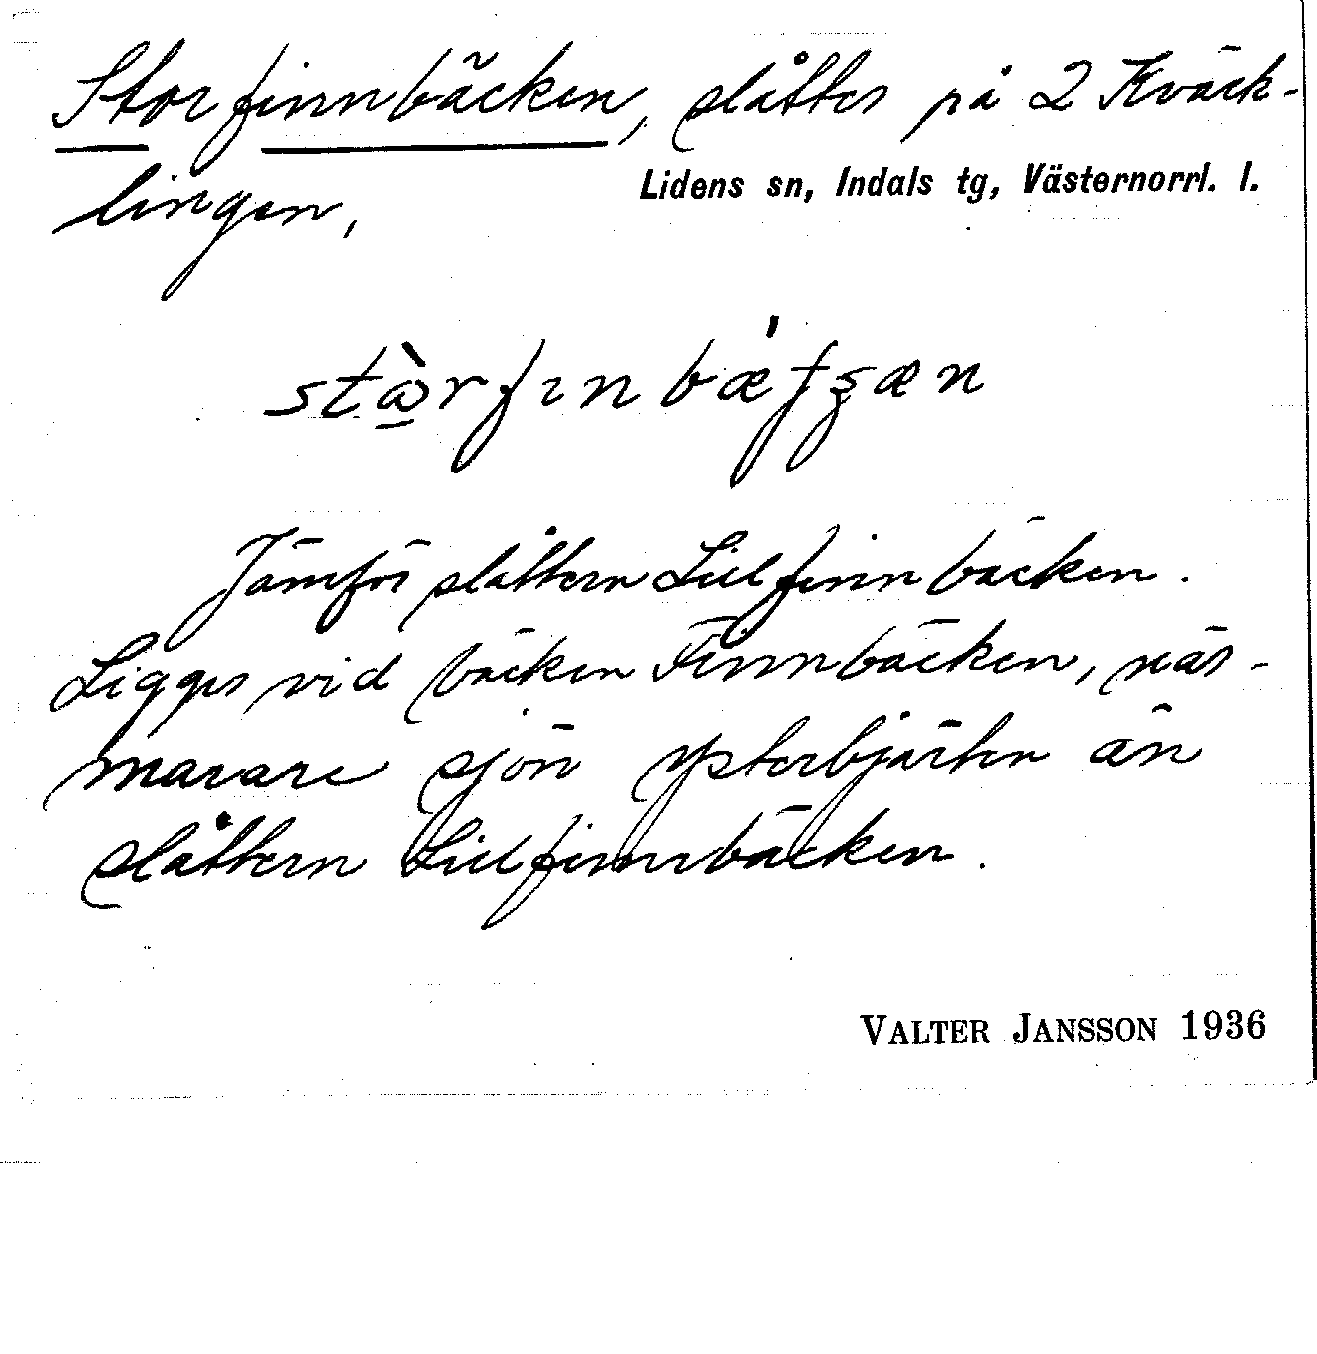 Storfinnbäcken, slåtter på 2 Kväck-
lingen,
Lidens sn, Indals tg, Västernorrl. l.
Jämför slåttern Lillfinnbäcken.
Ligger vid bäcken Finnbäcken, när-
marare sjön Ysterbjärten än
slåttern Lillfinnbäcken.
VALTER JANSSON 1936